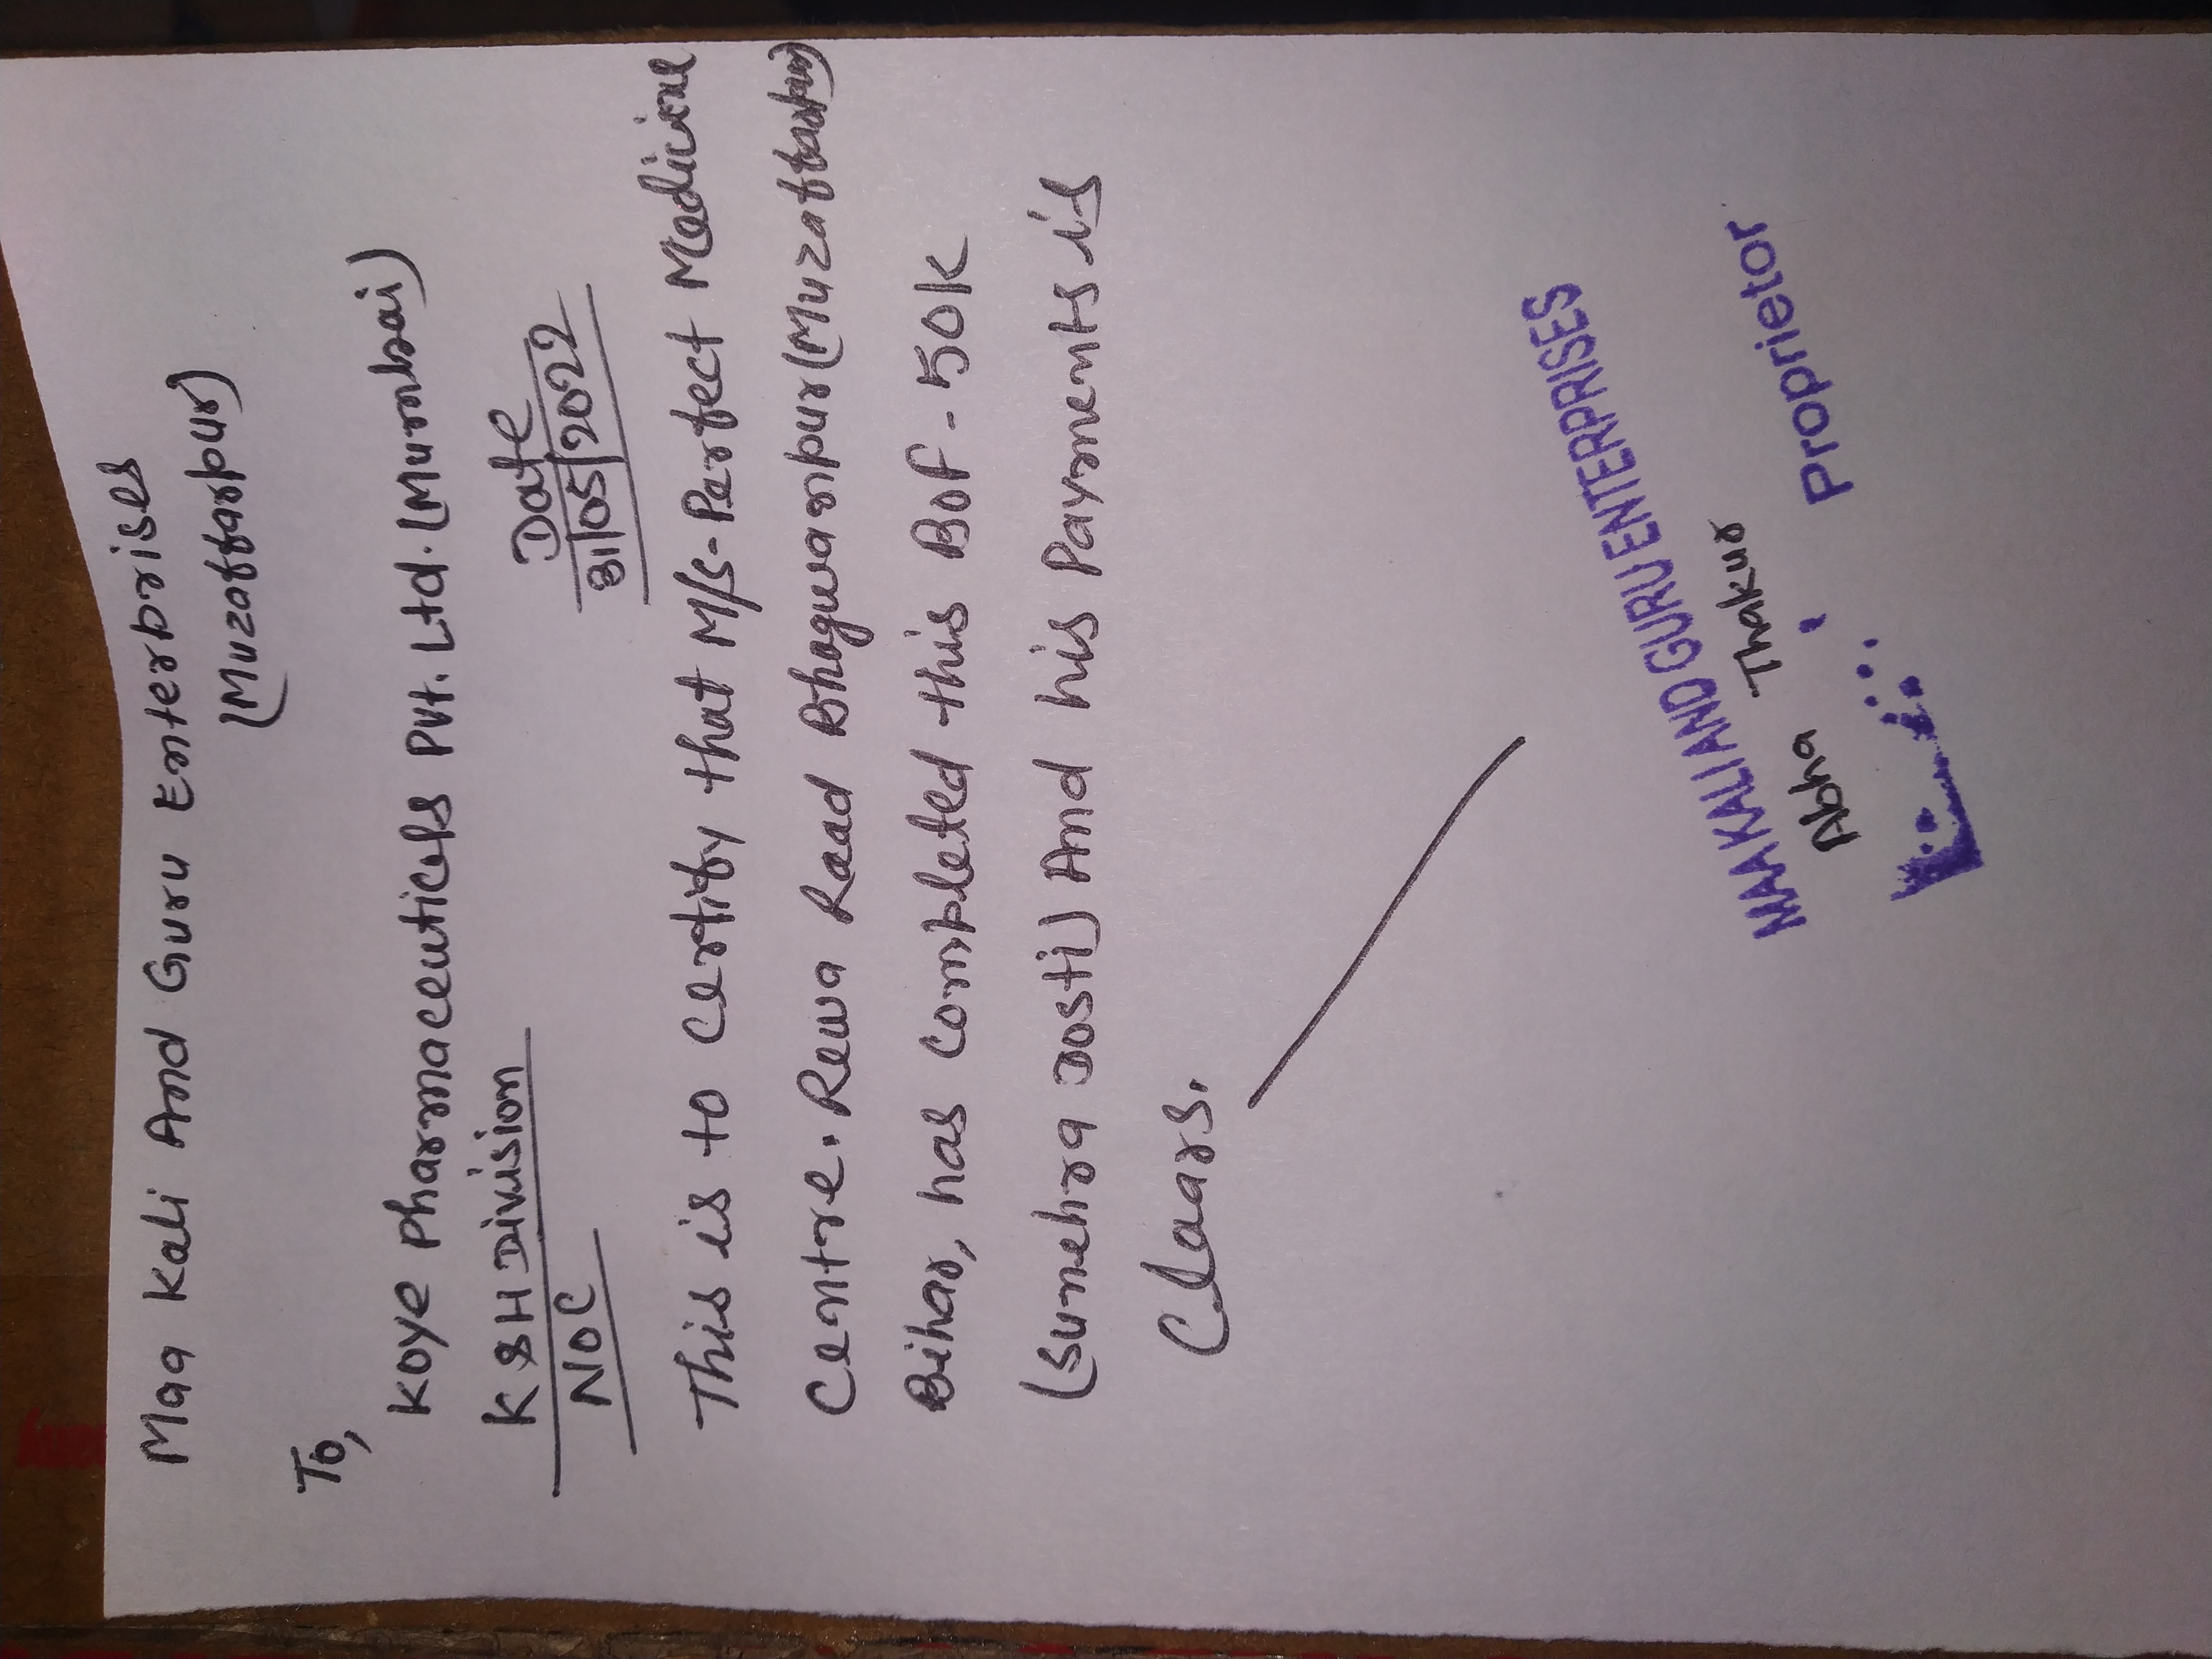 Maa Kali And Guru Enterprises
(Muzaffarpur)
To,
Koye Pharmaceuticals Pvt. Ltd. (Mumbai)
KSH Division
Date
NOC
31/05/2022
This is to Certify that M/s-Perfect Medicine
Centre. Rewa Raad Bhagwanpur (Muzaffarpur)
Bihar, has Completed this BOF-50K
(Sunehra dosti) And his Payments is
Clears.
MAA KALI AND GURU ENTERPRISES
Abha Thakur
Proprietor